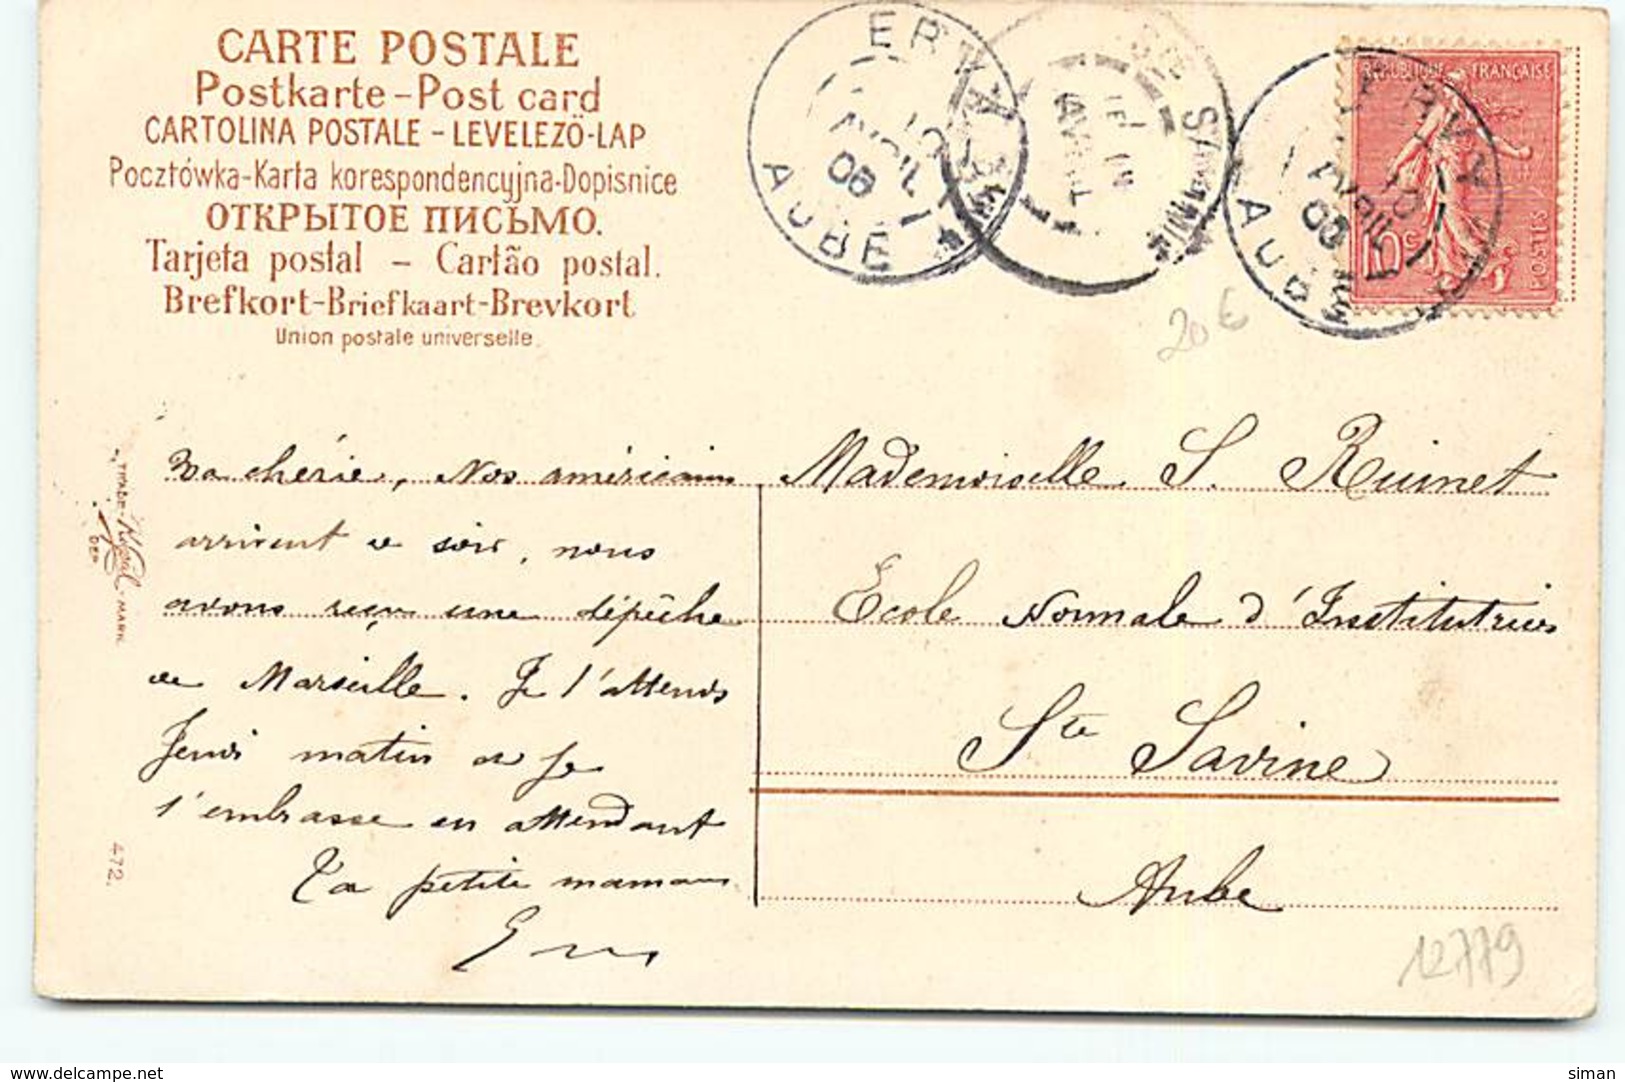 CARTE POSTALE
Postkarte - Post card
CARTOLINA POSTALE - LEVELEZŐ-LAP
Pocztówka-Karta korespondencyjna-Dopisnice
ОТКРЫТОЕ ПИСЬМО.
Tarjeta postal - Cartão postal.
Brefkort-Briefkaart-Brevkort
Union postale universelle.
ERVY
10
AVRIL
08
AUBE
STE SAVINE
AVRIL
REPUBLIQUE FRANÇAISE
10c
ERVY
10
AVRIL
08
AUBE
20 €
Ma chérie, Nos américains
arrivent ce soir, nous
avons reçu une dépêche
de Marseille. Je t'attends
Jeudi matin et je
t'embrasse en attendant
Ta petite maman
Mademoiselle S. Ruinet
Ecole Normale d'Institutrices
Ste Savine
Aube
TRADE-MARK
DEP
472.
12779
delcampe.net
siman